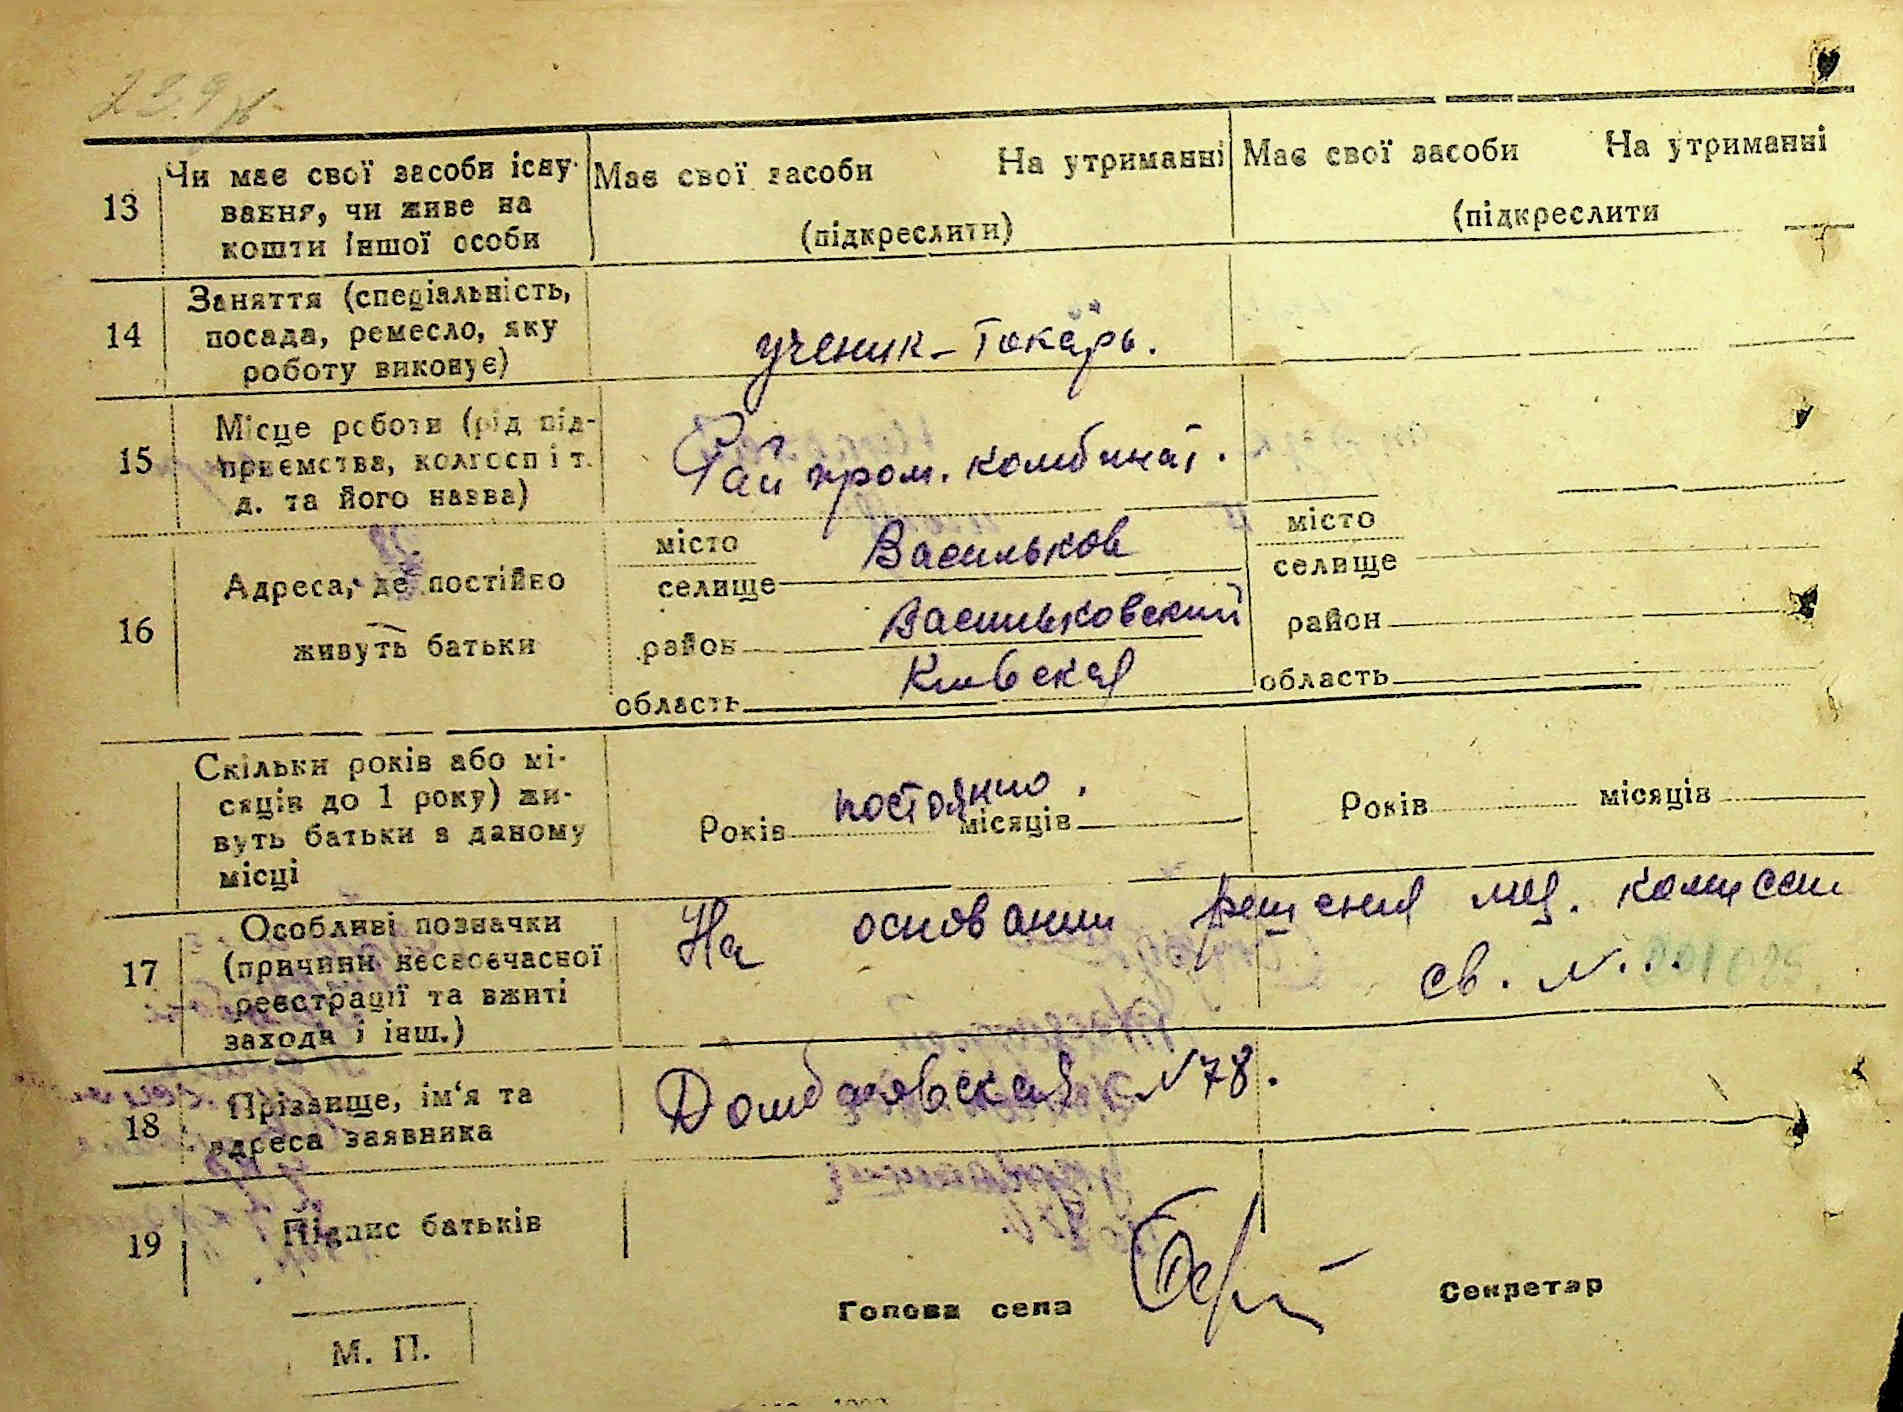 13 Чи має свої засоби існу-
вання, чи живе на
кошти іншої особи
Має свої засоби На утриманні
(підкреслити)
Має свої засоби На утриманні
(підкреслити
14 Заняття (спеціальність,
посада, ремесло, яку
роботу виконує)
ученик-токарь.
15 Місце роботи (рід під-
приємства, колгосп і т.
д. та його назва)
Рай пром. комбинат.
16 Адреса, де постійно
живуть батьки
місто Васильков
селище
район Васильковский
область Киевская
місто
селище
район
область
Скільки років або мі-
сяців до 1 року) жи-
вуть батьки в даному
місці
Років постоянно. місяців
Років місяців
17 Особливі позначки
(причини несвоєчасної
реєстрації та вжиті
заходи і інш.)
На основании решения мед. комиссии
св. N...
18 Прізвище, ім'я та
адреса заявника
Домбровская N 78.
19 Підпис батьків
Голова села Секретар
М. П.